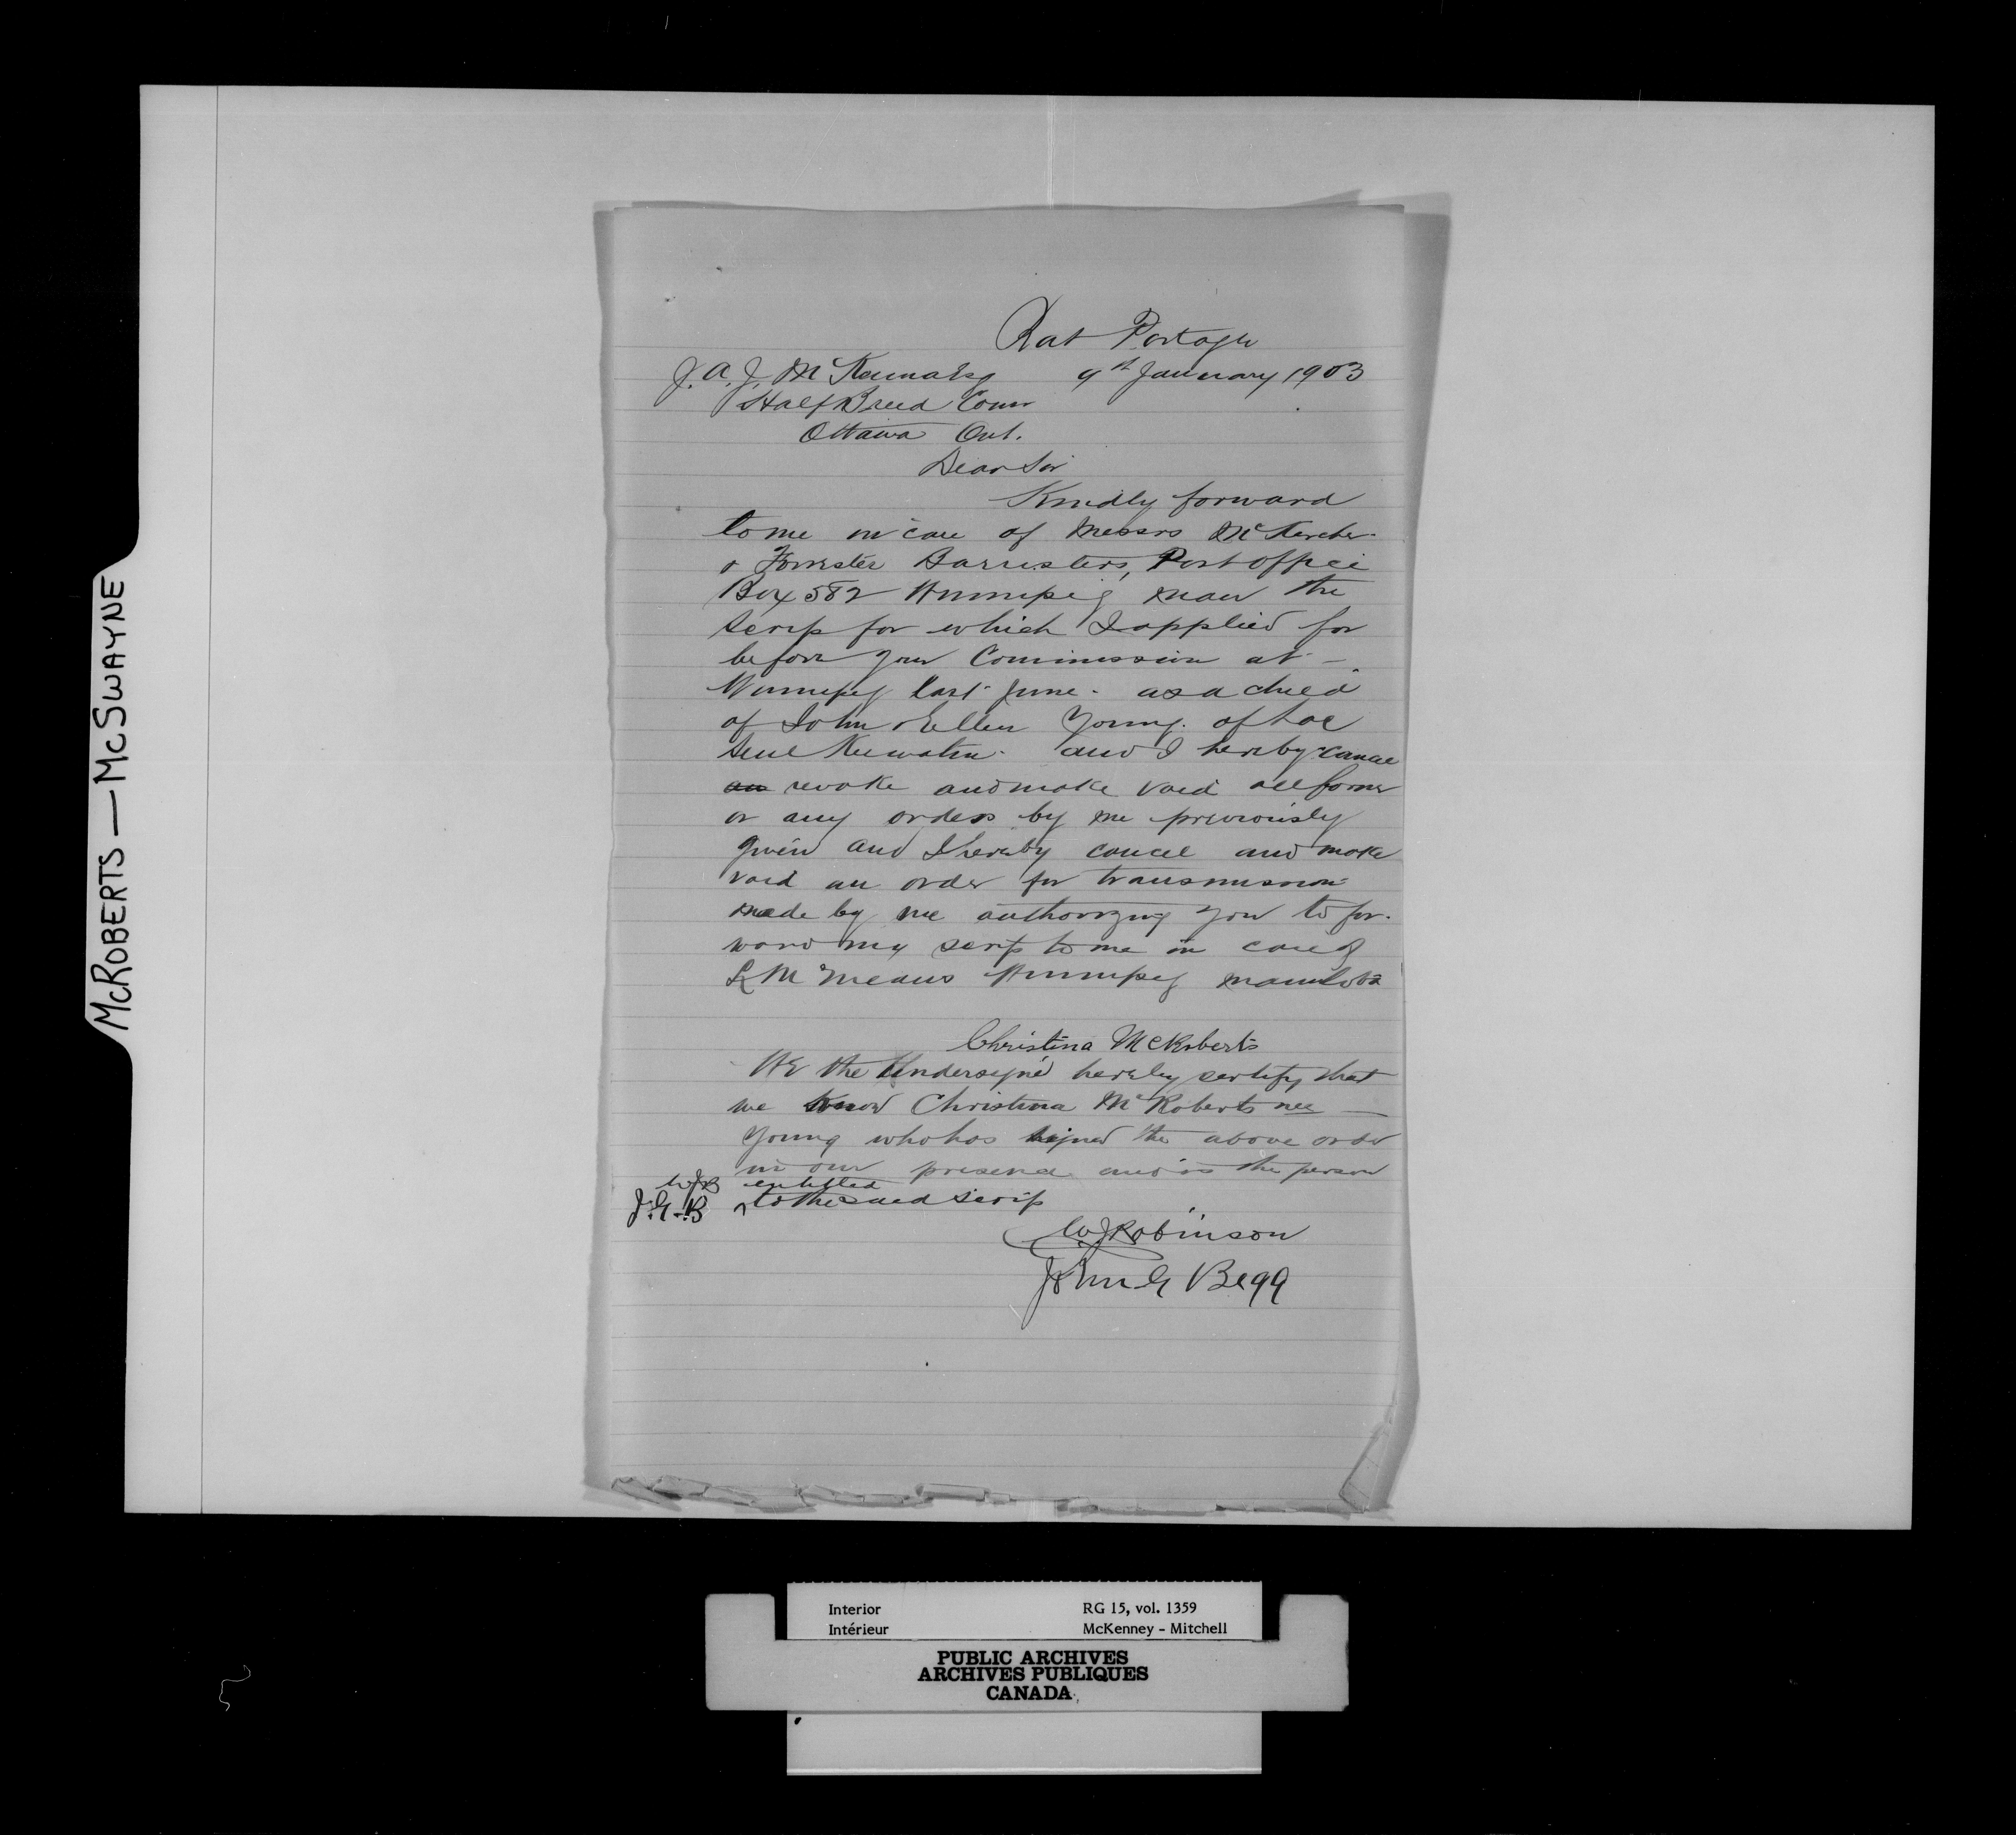 McROBERTS — McSWAYNE
Rat Portage
J. A. J. McKenna Esq 9th January 1903
Half Breed Comr
Ottawa Ont.
Dear Sir
Kindly forward
to me in care of Messrs McKercher
& Forrester Barristers, Post office
Box 582 Winnipeg Man the
Scrip for which I applied for
before your Commission at -
Winnipeg last June - as a child
of John & Ellen Young. of Lac
Seul Keewatin - and I hereby cancel
an revoke and make void all former
or any orders by me previously
given and I hereby cancel and make
void an order for transmission
made by me authorizing you to for-
ward my scrip to me in care of
L M Means Winnipeg Manitoba
Christina McRoberts
We the Undersigned hereby certify that
we know Christina McRoberts nee —
Young who has signed the above order
in our presence and is the person
WJR entitled
J.G.B to the said scrip
W J Robinson
John G Begg
Interior RG 15, vol. 1359
Intérieur McKenney - Mitchell
PUBLIC ARCHIVES
ARCHIVES PUBLIQUES
CANADA